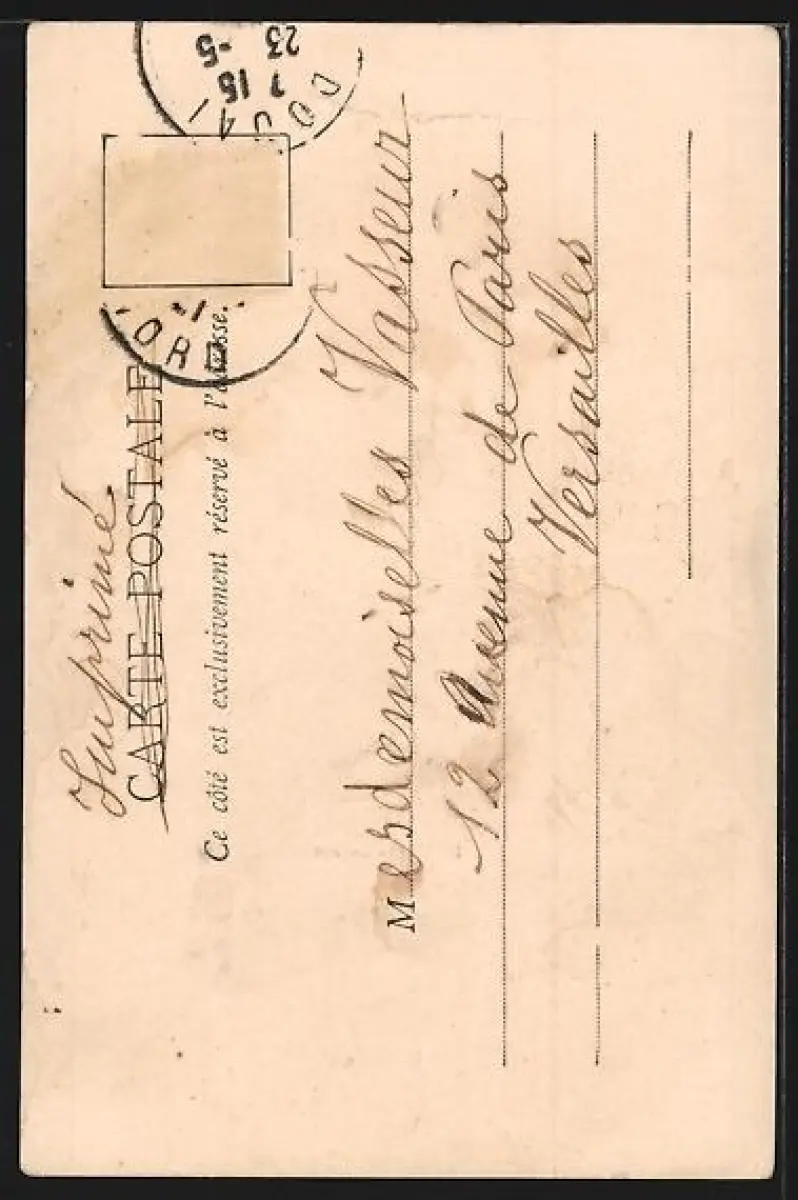 Imprimé
CARTE POSTALE
Ce côté est exclusivement réservé à l'adresse.
DOUAI
7 15
23 -5
NORD
Mesdemoiselles Vasseur
12 Avenue de Paris
Versailles